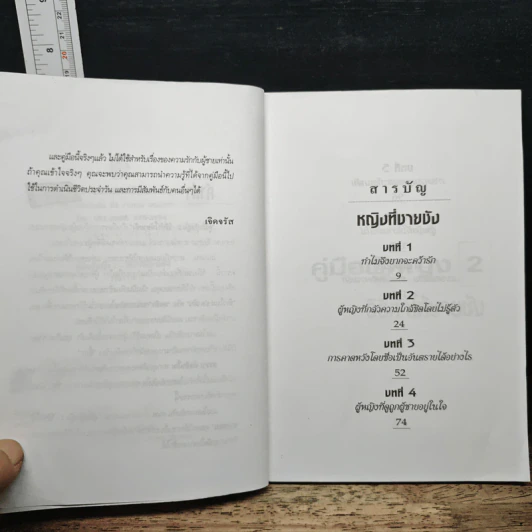 และคู่มือนี้จริงๆแล้ว ไม่ได้ใช้สำหรับเรื่องของความรักกับผู้ชายเท่านั้น
ถ้าคุณเข้าใจจริงๆ คุณจะพบว่าคุณสามารถนำความรู้ที่ได้จากคู่มือนี้ไป
ใช้ในการดำเนินชีวิตประจำวัน และการมีสัมพันธ์กับคนอื่นๆได้
เจิดจรัส
สารบัญ
หญิงที่ชายชัง
บทที่ 1
ทำไมจึงยากจะคว้ารัก
9
บทที่ 2
ผู้หญิงที่กลัวความใกล้ชิดโดยไม่รู้ตัว
24
บทที่ 3
การคาดหวังโดยซื่อเป็นอันตรายได้อย่างไร
52
บทที่ 4
ผู้หญิงที่ดูถูกผู้ชายอยู่ในใจ
74
8
9
20
21
22